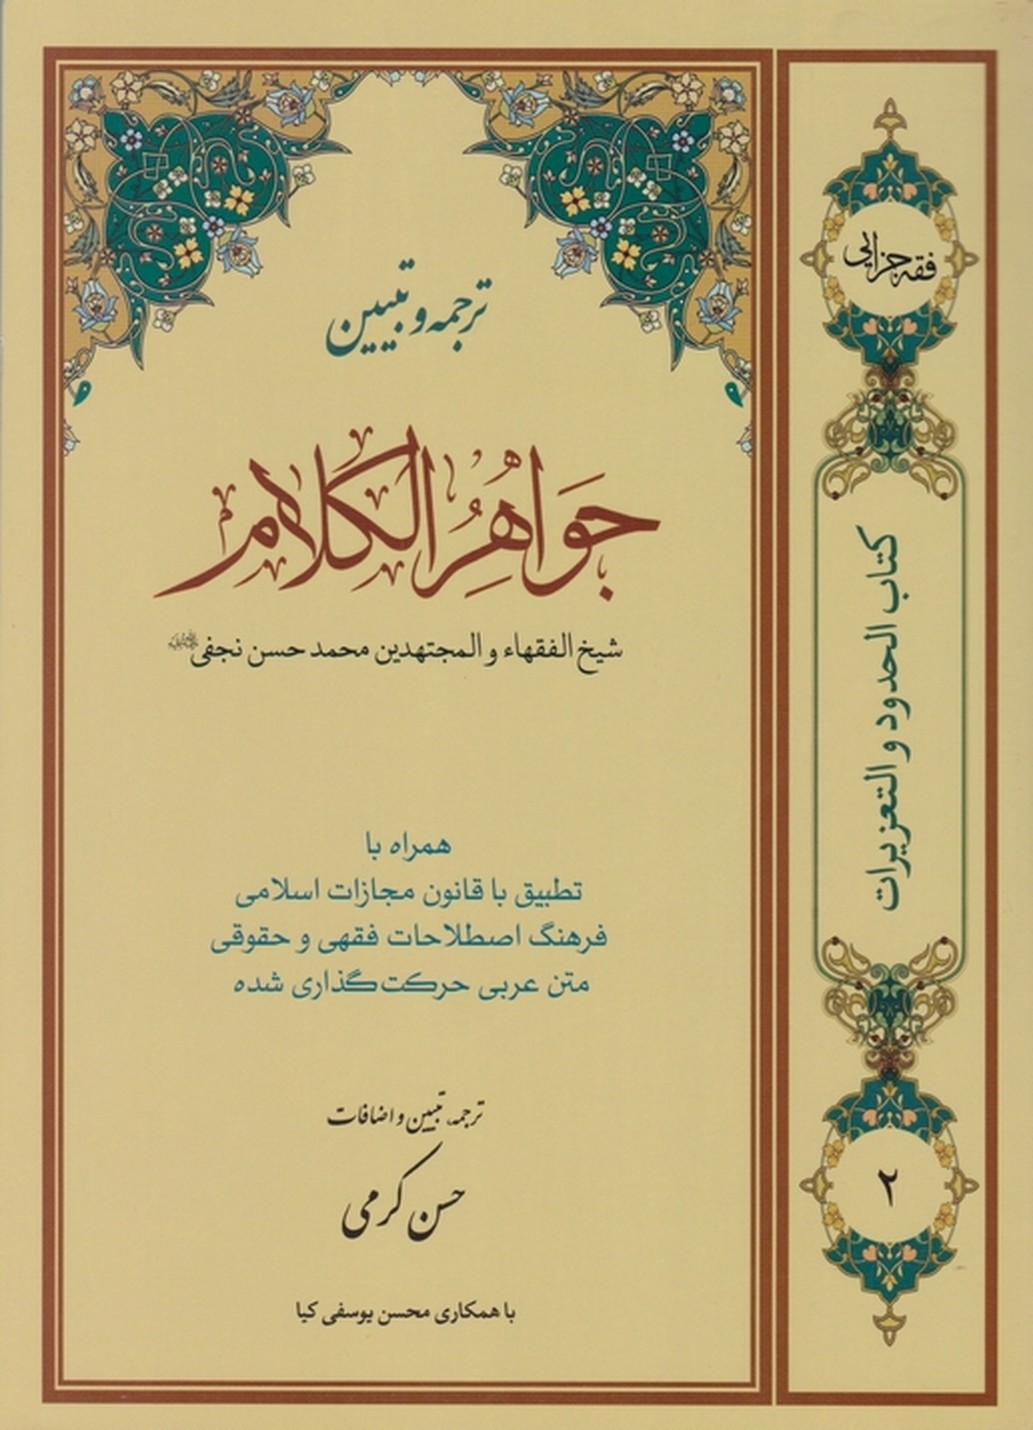 ترجمه و تبیین
جَوَاهِرُ الكَلَام
شیخ الفقهاء و المجتهدین محمد حسن نجفی
همراه با
تطبیق با قانون مجازات اسلامی
فرهنگ اصطلاحات فقهی و حقوقی
متن عربی حرکت‌گذاری شده
ترجمه، تبیین و اضافات
حسن کرمی
با همکاری محسن یوسفی کیا
فقه جزایی
کتاب الحدود و التعزیرات
۲